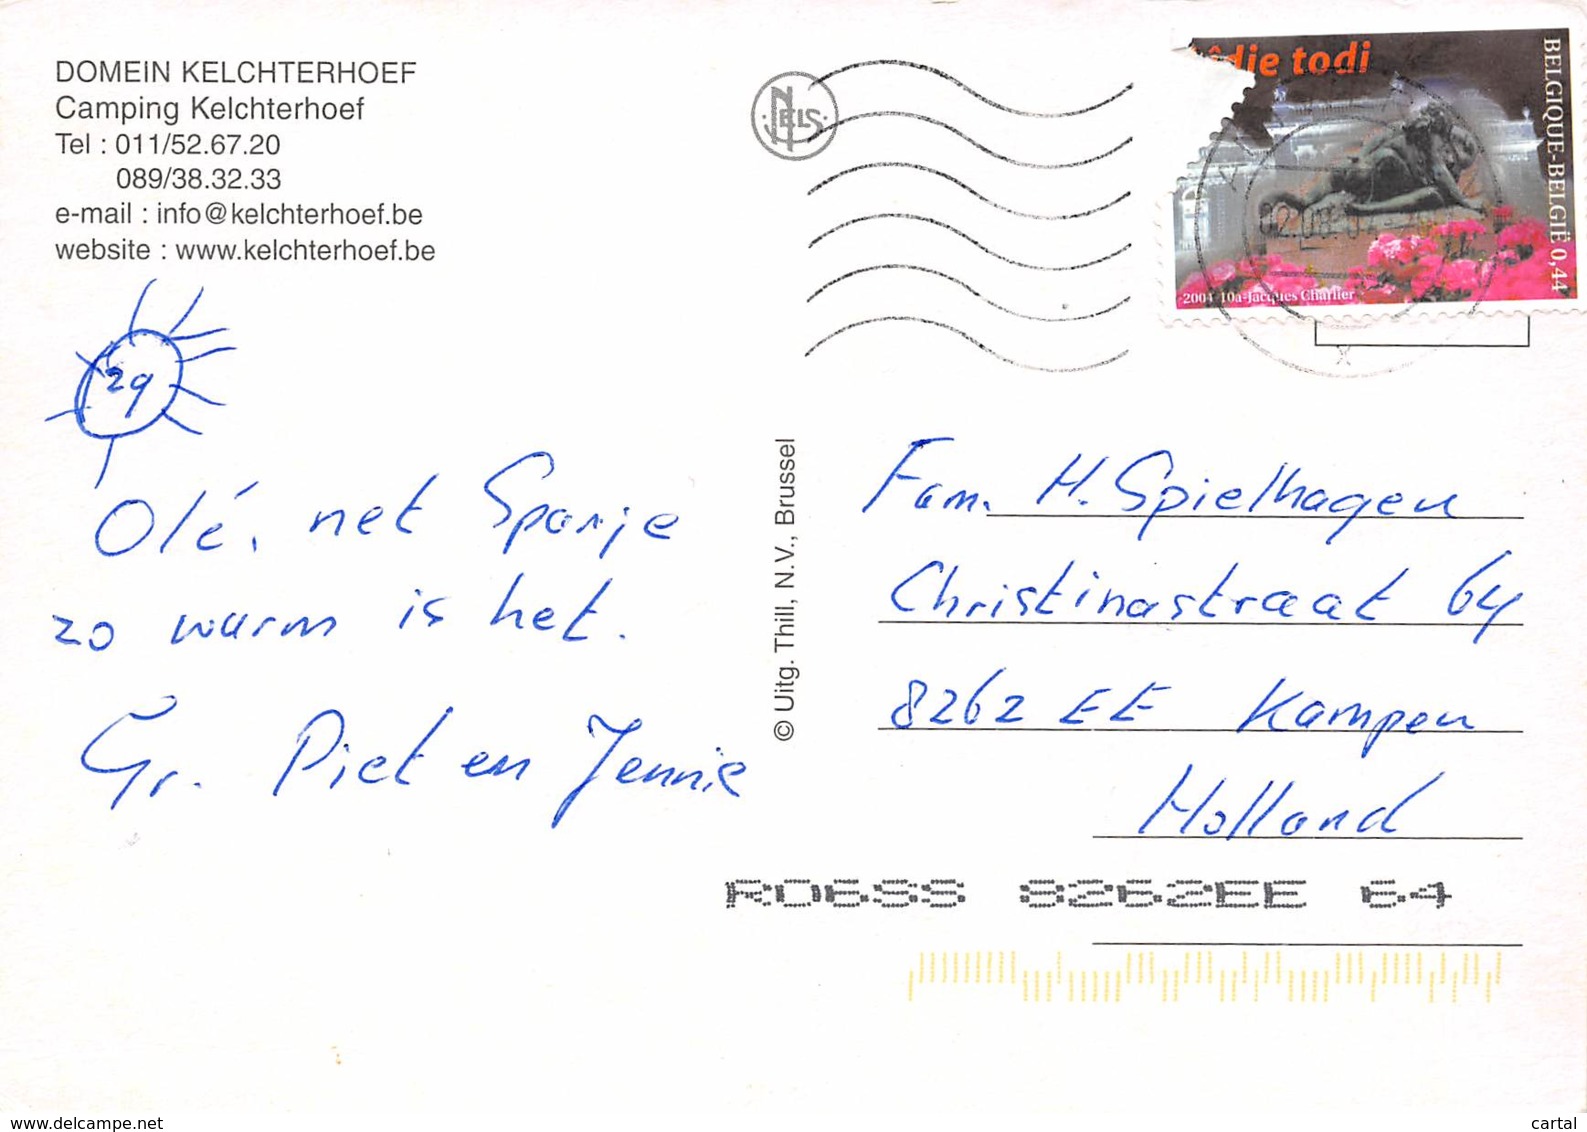 DOMEIN KELCHTERHOEF
Camping Kelchterhoef
Tel : 011/52.67.20
089/38.32.33
e-mail : info@kelchterhoef.be
website : www.kelchterhoef.be
29
Olé, net Spanje
zo warm is het.
Gr. Piet en Jennie
NELS
© Uitg. Thill, N.V., Brussel
die todi
BELGIQUE-BELGIË 0,44
2004 10a-Jacques Charlier
Fam. H. Spielhagen
Christinastraat 64
8262 EE Kampen
Holland
RO6SS 8262EE 64
www.delcampe.net
cartal